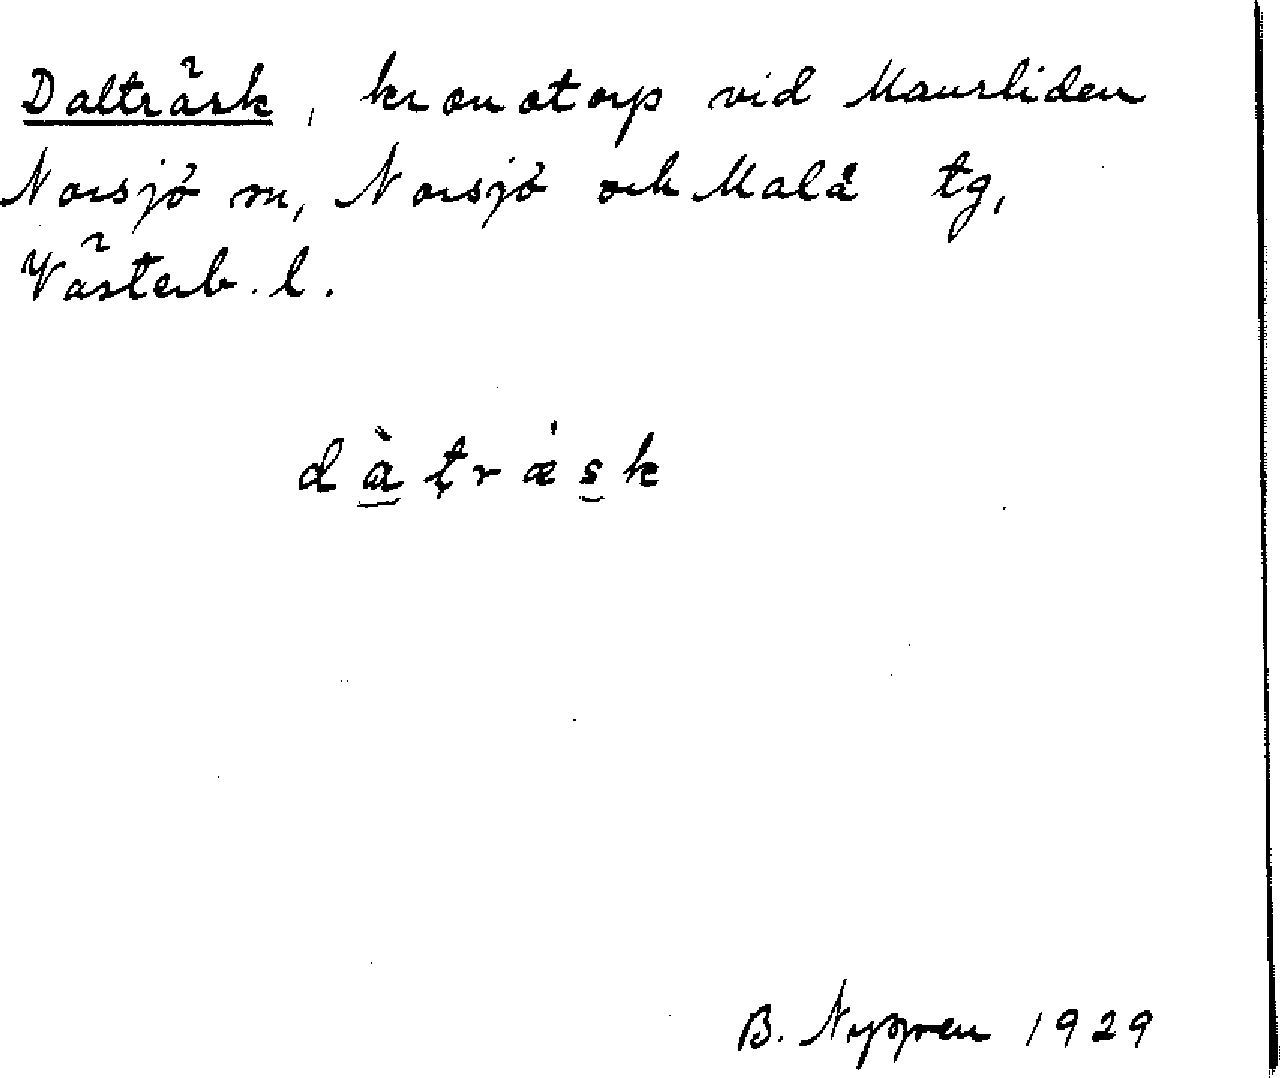 Dalträsk, kronotorp vid Maursliden
Norsjö sn, Norsjö och Malå tg,
Västerb. l.
dàt̨ræ̀sk
B. Nygren 1929